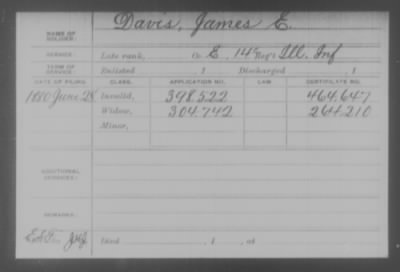 NAME OF SOLDIER: Davis, James E.
SERVICE: Late rank, Co E, 147 Reg't Ill. Inf
TERM OF SERVICE: Enlisted , 1 Discharged , 1
DATE OF FILING. CLASS. APPLICATION NO. LAW CERTIFICATE NO.
1880 June 28 Invalid, 398.522 464.647
Widow, 304.742 264.210
Minor,
ADDITIONAL SERVICES:
REMARKS:
Died , 1 , at